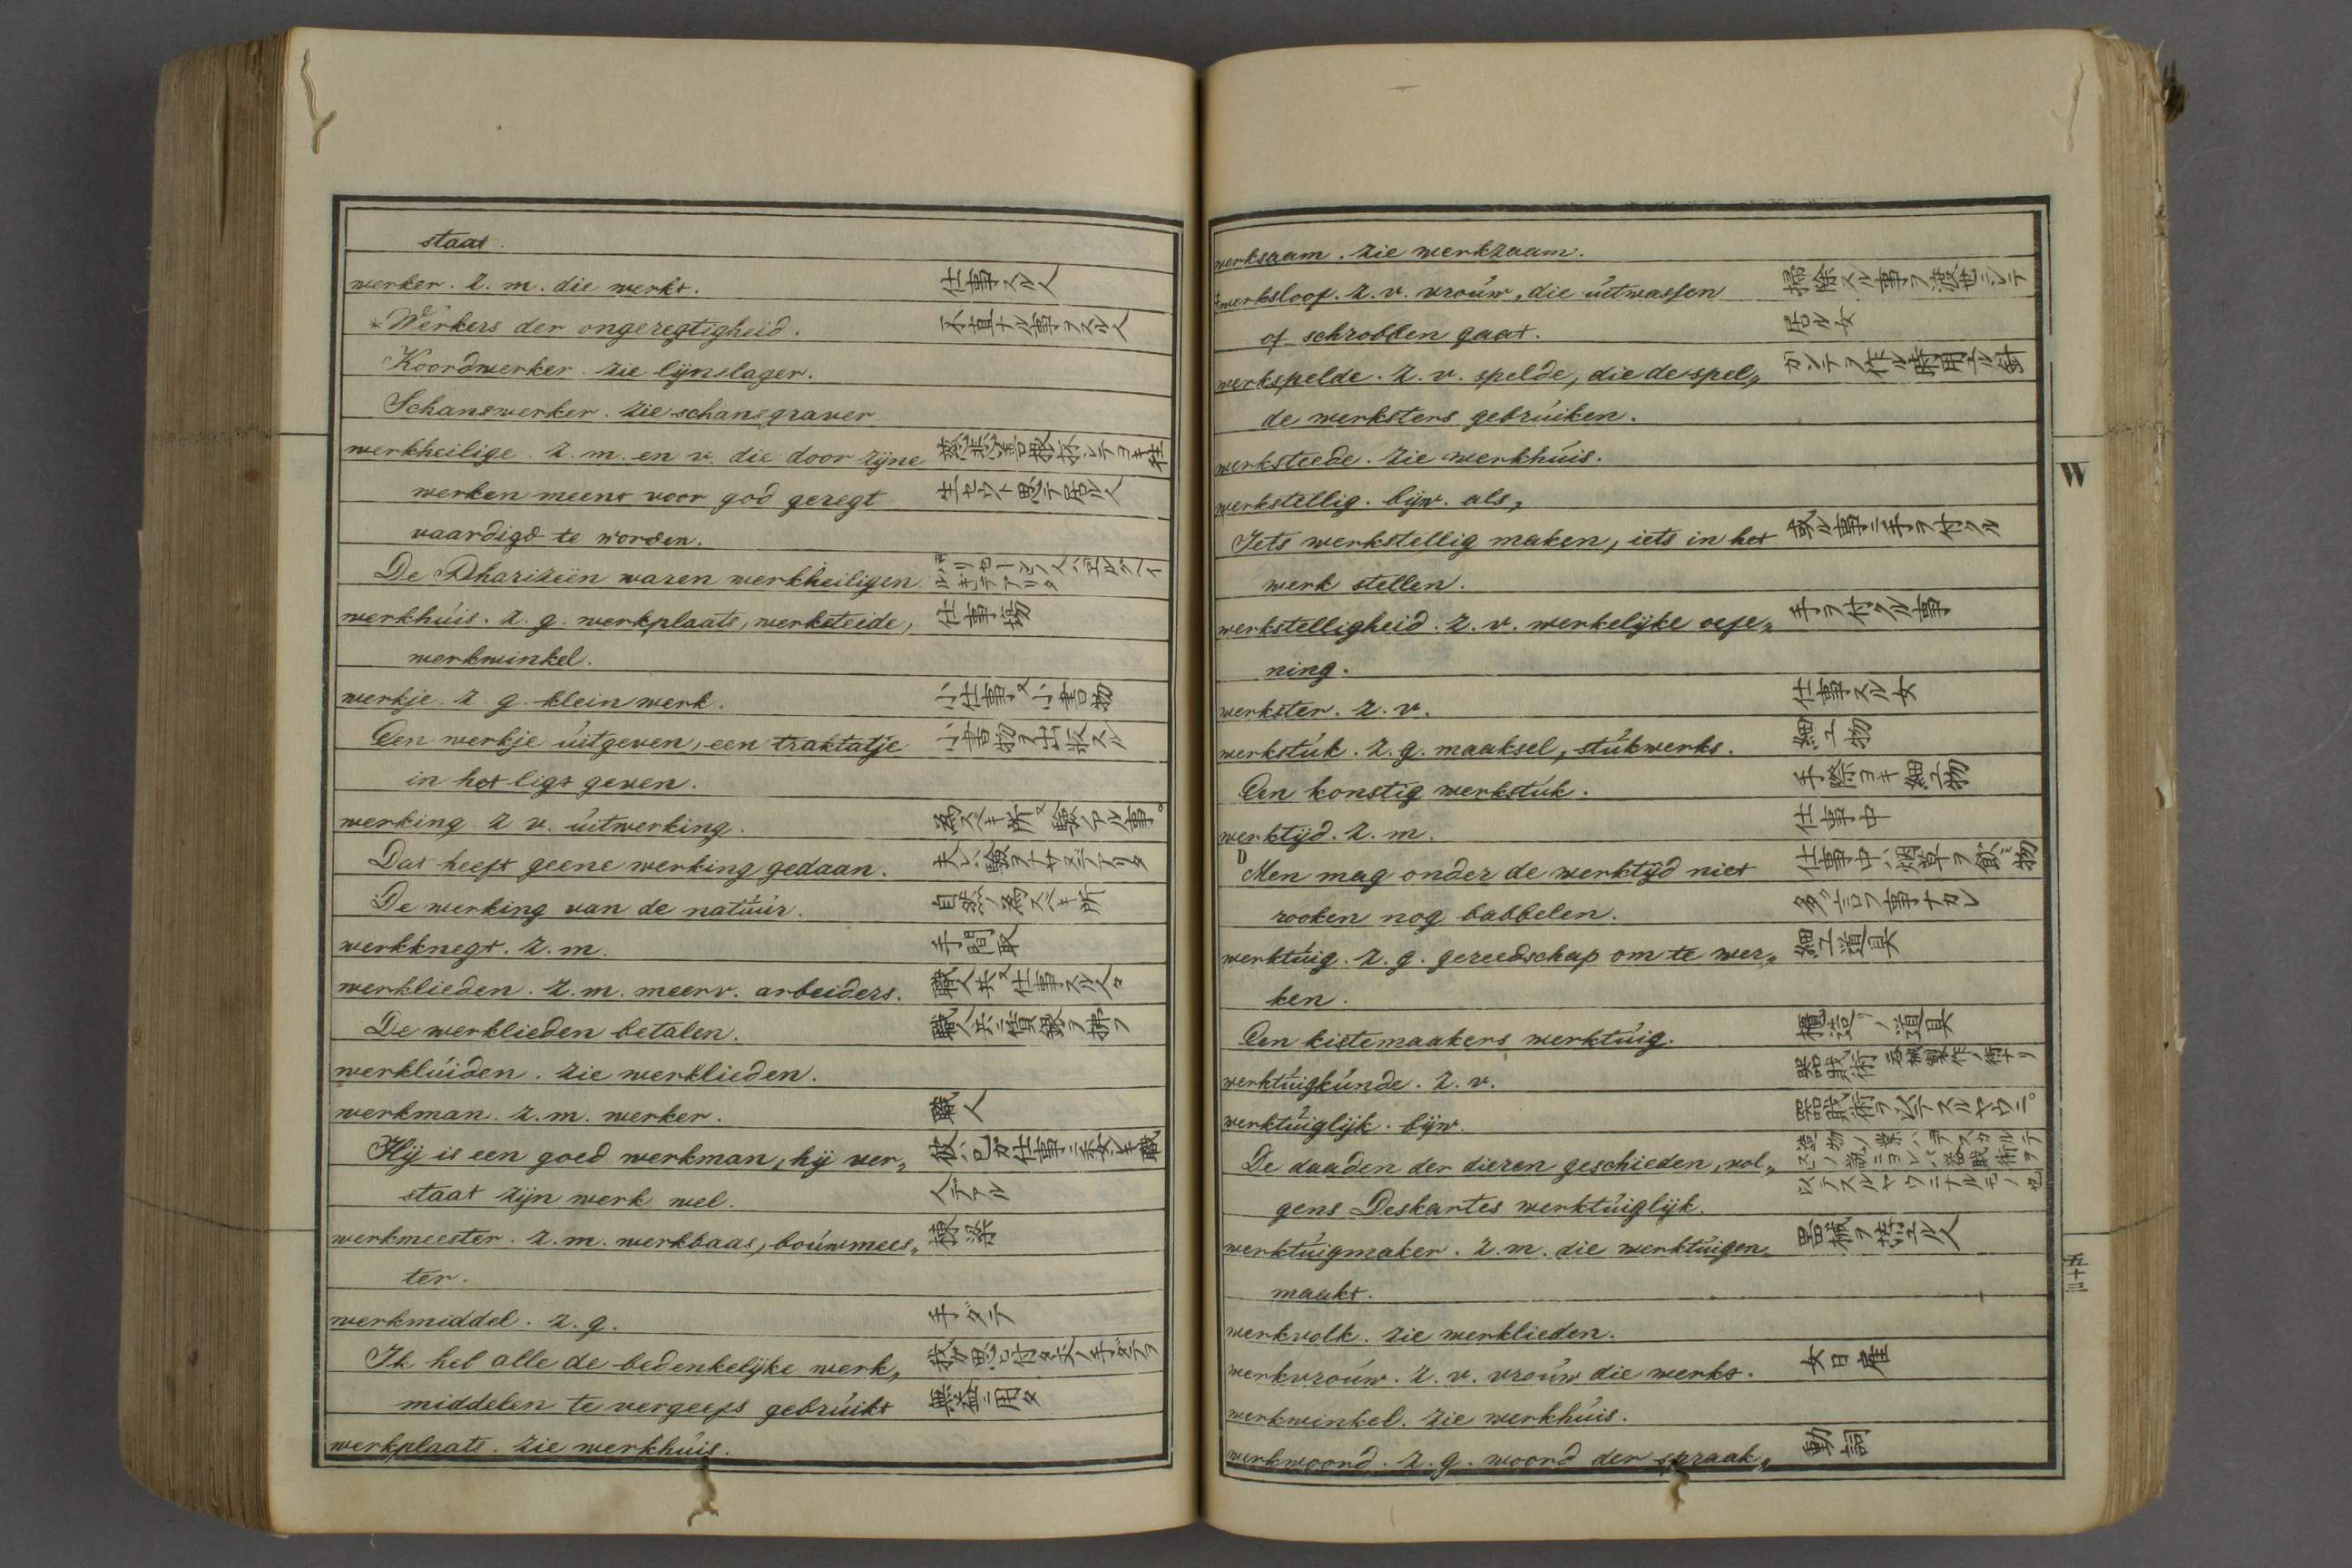 staat.
werker. z. m. die werkt. 仕事スル人
*Werkers der ongeregtigheid. 不直ナル事ヲスル人
Koordwerker. zie lijnslager.
Schanswerker. zie schansgraver
werkheilige. z. m. en v. die door zijne
werken meent voor god geregt 生セウト思テ居ル人
vaardigd te worden.
De Pharizeën waren werkheiligen.
werkhuis. z. g. werkplaats, werksteide, 仕事場
werkwinkel.
werkje. z g. klein werk. 小仕事又小書物
Een werkje uitgeven, een traktatje 小書物ヲ出板スル
in het ligt geven.
werking. z v. uitwerking. 為スベキ所又驗アル事。
Dat heeft geene werking gedaan. 夫レハ驗ヲナサズシテアリタ
De werking van de natuur. 自然ノ為スベキ所
werkknegt. z. m. 手間取
werklieden. z. m. meerv. arbeiders. 職人共又仕事スル人々
De werklieden betalen. 職人共ニ賃銀ヲ拂フ
werkluiden. zie werklieden.
werkman. z. m. werker. 職人
Hij is een goed werkman, hij ver„ 彼ハ己ガ仕事ニ委シキ職
staat zijn werk wel. 人デアル
werkmeester. z. m. werkbaas, bouwmees„ 棟梁
ter.
werkmiddel. z. g. 手ダテ
Ik heb alle de bedenkelijke werk„ 我ガ思ヒ付タ丈ノ手ダテヲ
middelen te vergeefs gebruikt 無益ニ用タ
werkplaats. zie werkhuis.
werksaam. zie werkzaam.
werksloof. z. v. vrouw, die uitwassen 掃除スル事ヲ渡世ニシテ
of schrobben gaat. 居ル女
werkspelde. z. v. spelde, die de spel„ カンテヲ作ル時用ル針
de werksters gebruiken.
werksteede. zie werkhuis.
werkstellig. bijw. als,
Iets werkstellig maken, iets in het 或ル事ニ手ヲ付クル
werk stellen.
werkstelligheid. z. v. werkelijke oefe„ 手ヲ付クル事
ning.
werkster. z. v. 仕事スル女
werkstuk. z. g. maaksel, stukwerks. 細工物
Een konstig werkstuk. 手際ヨキ細工物
werktijd. z. m. 仕事中
Men mag onder de werktijd niet 仕事中ハ烟草ヲ飲ミ物
rooken nog babbelen. 多ク言フ事ナカレ
werktuig. z. g. gereedschap om te wer„ 細工道具
ken.
Een kistemaakers werktuig. 櫃造リノ道具
werktuigkunde. z. v. 器械術 器械製作ノ術ナリ
werktuiglijk. bijw. 器械術ヲ以テスルヤウニ。
De daaden der dieren geschieden, vol„
gens Deskartes werktuiglijk. 以テスルヤウニナルモノ也
werktuigmaker. z. m. die werktuigen 器械ヲ拵エル人
maakt.
werkvolk. zie werklieden.
werkvrouw. z. v. vrouw die werkt. 女日雇
werkwinkel. zie werkhuis.
werkwoord. z. g. woord der spraak„ 動詞
W